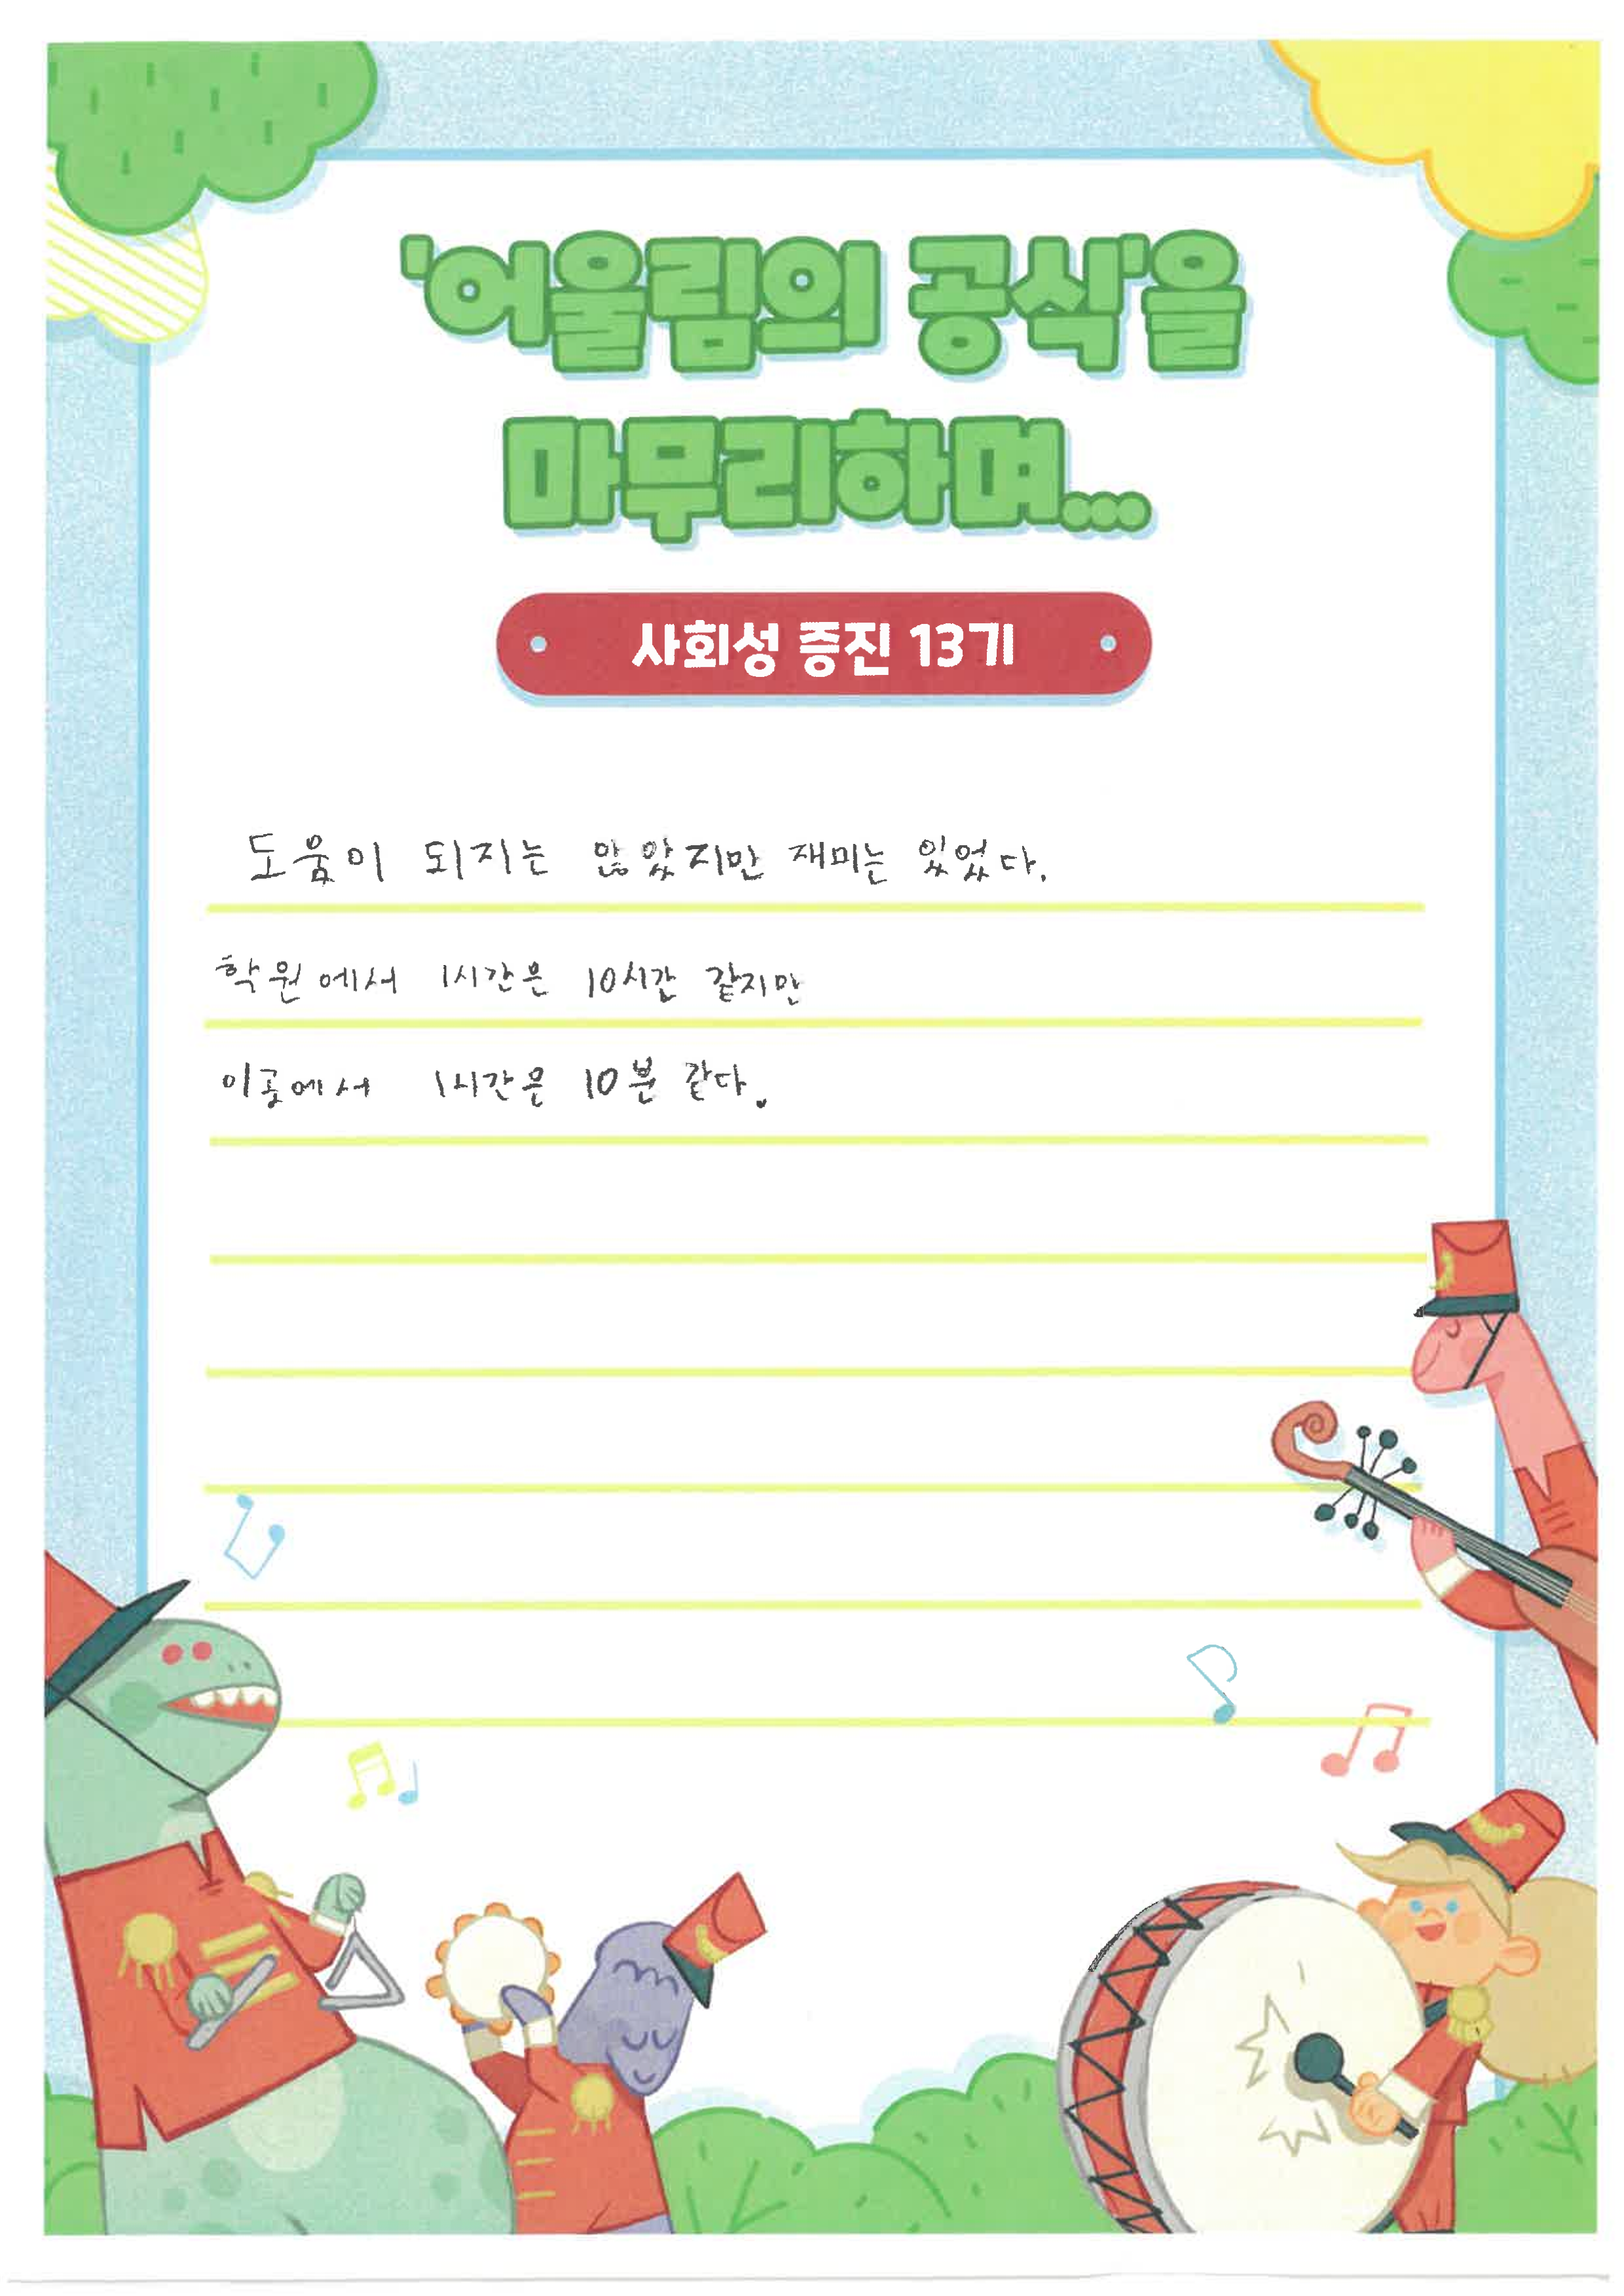 '어울림의 공식'을
마무리하며...
사회성 증진 13기
도움이 되지는 않았지만 재미는 있었다.
학원에서 1시간은 10시간 같지만
이곳에서 1시간은 10분 같다.